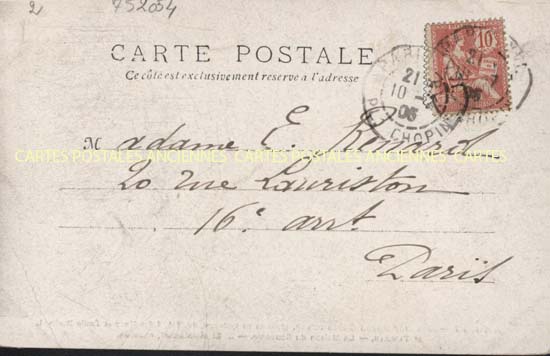 2 752054
CARTE POSTALE
Ce côté est exclusivement réservé a l'adresse
10
PARIS
21
10
05
PL. CHOPIN
Madame E. Renard
CARTES POSTALES ANCIENNES CARTES POSTALES ANCIENNES CARTES POSTALES ANCIENNES
20 rue Lauriston
16e arrt
Paris